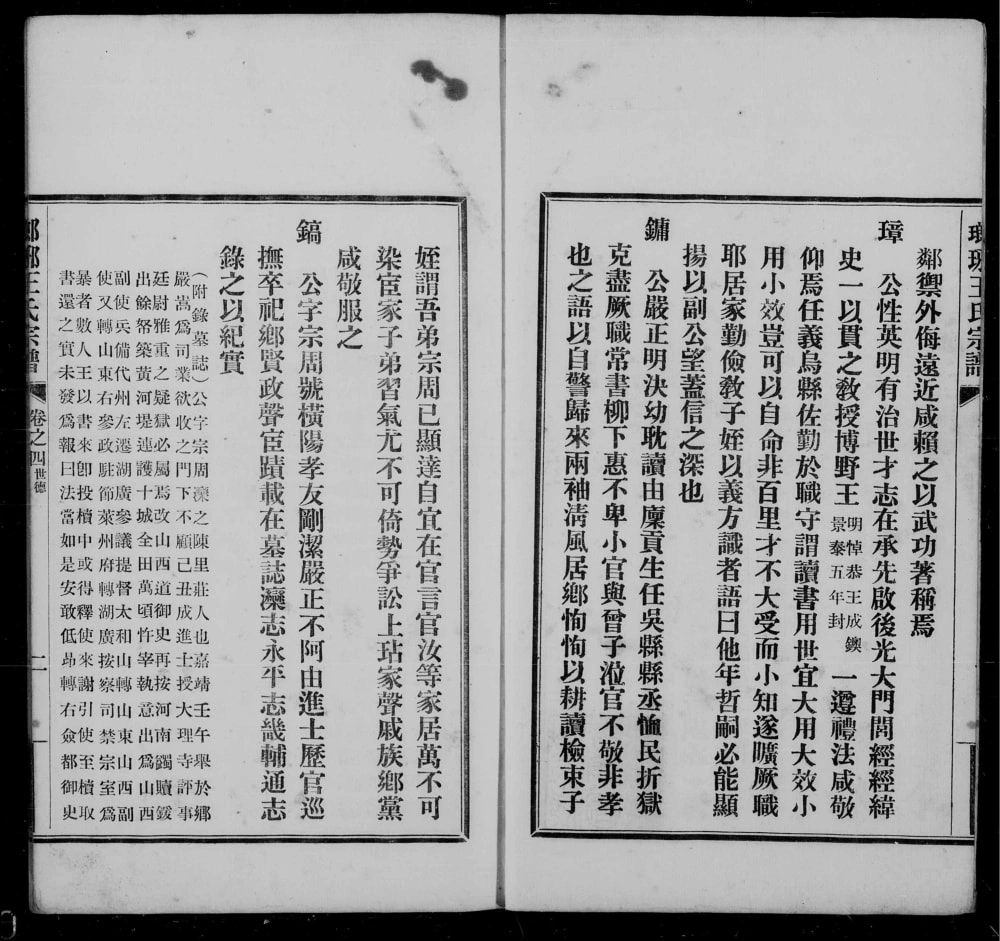 瑯琊王氏宗譜
鄰禦外侮遠近咸賴之以武功著稱焉
璋
公性英明有治世才志在承先啟後光大門閭經經緯
史一以貫之教授博野王
明悼恭王成鐭
景泰五年封
一遵禮法咸敬
仰焉任義烏縣佐勤於職守謂讀書用世宜大用大效小
用小效豈可以自命非百里才不大受而小知遂曠厥職
耶居家勤儉教子姪以義方識者語曰他年哲嗣必能顯
揚以副公望蓋信之深也
鏞
公嚴正明決幼耽讀由廩貢生任吳縣縣丞恤民折獄
克盡厥職常書柳下惠不卑小官與曾子涖官不敬非孝
也之語以自警歸來兩袖清風居鄉恂恂以耕讀檢束子
姪謂吾弟宗周已顯達自宜在官言官汝等家居萬不可
染宦家子弟習氣尤不可倚勢爭訟上玷家聲戚族鄉黨
咸敬服之
鎬
公字宗周號橫陽孝友剛潔嚴正不阿由進士歷官巡
撫卒祀鄉賢政聲宦蹟載在墓誌灤志永平志畿輔通志
錄之以紀實
(附錄墓誌)公字宗周灤之陳里莊人也嘉靖壬午舉於鄉
嚴嵩為司業欲收之門下不顧己丑成進士授大理寺評事
廷尉雅重之疑獄必屬焉改山西道御史再按河南鐲贖鍰
出餘帑築黃河堤連護十城全田萬頃忤宰執意出為山西
副使兵備代州左遷湖廣參議提督太和山轉山東山西副
使又轉山東右參政駐節萊州府轉湖廣按察司禁宗室為
暴者數人王以書來卽投櫝中或得釋使來謝引使至櫝取
書還之實未發為報曰法當如是安敢低昂轉右僉都御史
瑯琊王氏宗譜
卷之四
世德
二